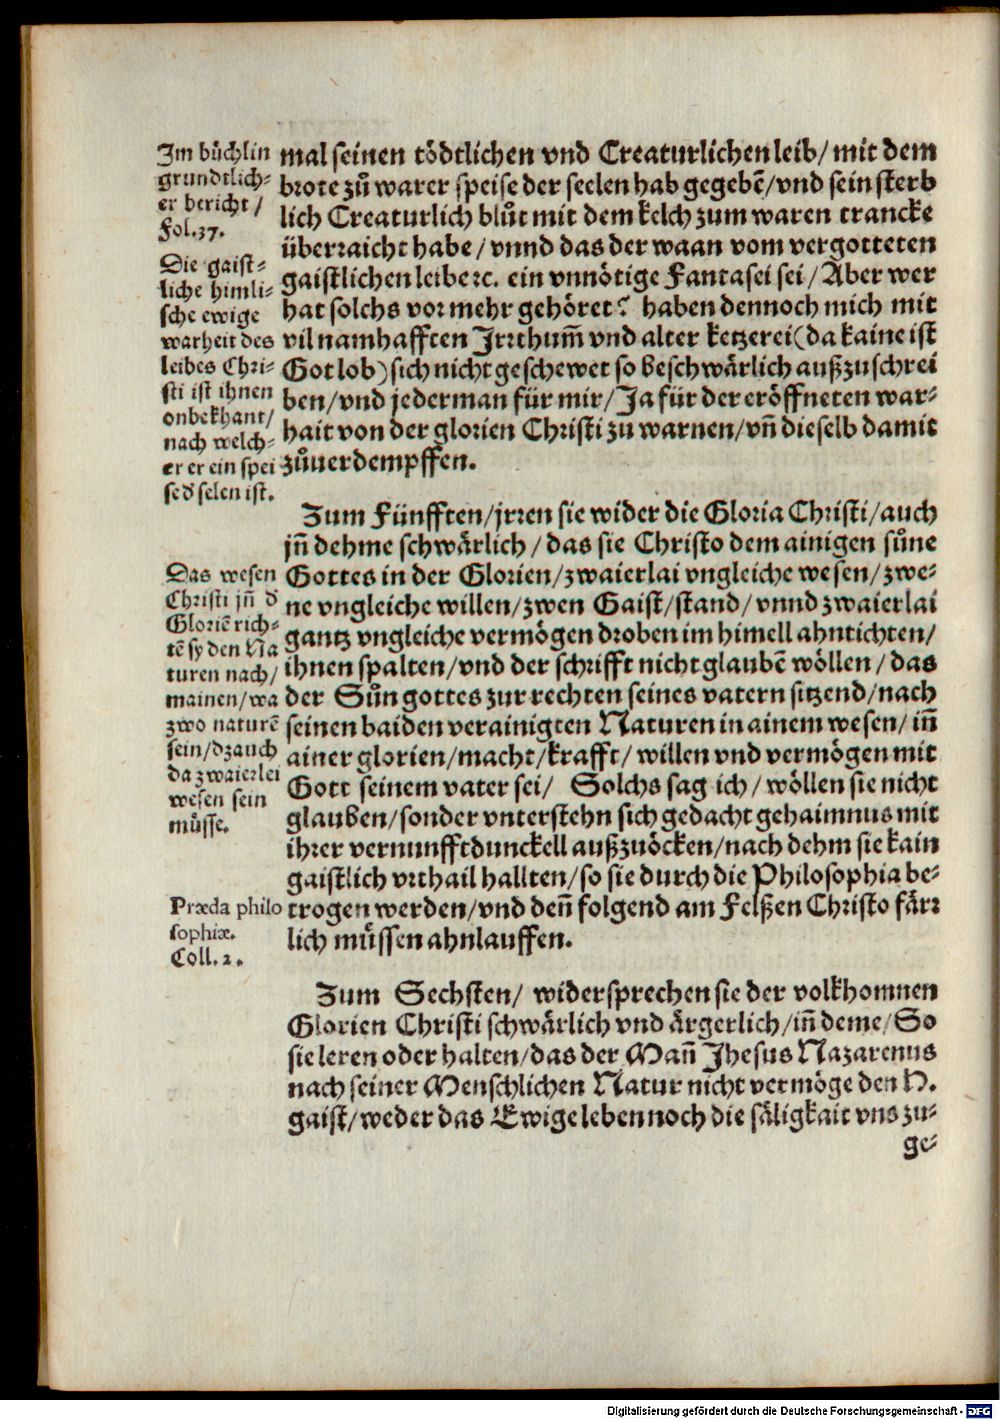 Im bůchlin
grundtlich⸗
er bericht /
Fol. 37.
Die gaist⸗
liche himli⸗
sche ewige
warheit des
leibes Chri⸗
sti ist ihnen
onbekhant/
nach welch⸗
er er ein spei
se d̕ selen ist.
mal seinen tödtlichen vnd Creaturlichen leib/ mit dem
brote zů warer speise der seelen hab gegebē/vnd sein sterb
lich Creaturlich blůt mit dem kelch zum waren trancke
überraicht habe / vnnd das der waan vom vergotteten
gaistlichen leibe ꝛc. ein vnnötige Fantasei sei / Aber wer
hat solchs vor mehr gehöret? haben dennoch mich mit
vil namhafften Jrrthum̄ vnd alter ketzerei (da kaine ist
Got lob) sich nicht geschewet so beschwärlich außzuschrei
ben/vnd jederman für mir/ Ja für der eröffneten war⸗
hait von der glorien Christi zu warnen/vn̄ dieselb damit
zůuerdempffen.
Zum Fünfften/jrren sie wider die Gloria Christi/auch
jn̄ dehme schwärlich / das sie Christo dem ainigen sůne
Gottes in der Glorien/zwaierlai vngleiche wesen/zwe⸗
ne vngleiche willen/zwen Gaist/stand/ vnnd zwaierlai
gantz vngleiche vermögen droben im himell ahntichten/
ihnen spalten/vnd der schrifft nicht glaubē wöllen / das
der Sůn gottes zur rechten seines vatern sitzend/nach
seinen baiden verainigten Naturen in ainem wesen/ in̄
ainer glorien/macht/krafft/ willen vnd vermögen mit
Gott seinem vater sei/ Solchs sag ich/ wöllen sie nicht
glauben/sonder vnterstehn sich gedacht gehaimnus mit
ihrer vernunfft dunckell außzuöcken/nach dehm sie kain
gaistlich vrthail hallten/so sie durch die Philosophia be⸗
trogen werden/vnd den̄ folgend am Felßen Christo färr
lich müssen ahnlauffen.
Das wesen
Christi jn̄ d̕
Gloriē rich⸗
tē sy den Na
turen nach/
mainen/wa
zwo naturē
sein/dz auch
da zwaierlei
wesen sein
müsse.
Præda philo
sophiæ.
Coll. 2.
Zum Sechsten/ widersprechen sie der volkhomnen
Glorien Christi schwärlich vnd ärgerlich/in̄ deme/ So
sie leren oder halten/das der Man̄ Jhesus Nazarenus
nach seiner Menschlichen Natur nicht vermöge den H.
gaist/weder das Ewige leben noch die säligkait vns zu⸗
ge⸗
Digitalisierung gefördert durch die Deutsche Forschungsgemeinschaft - DFG